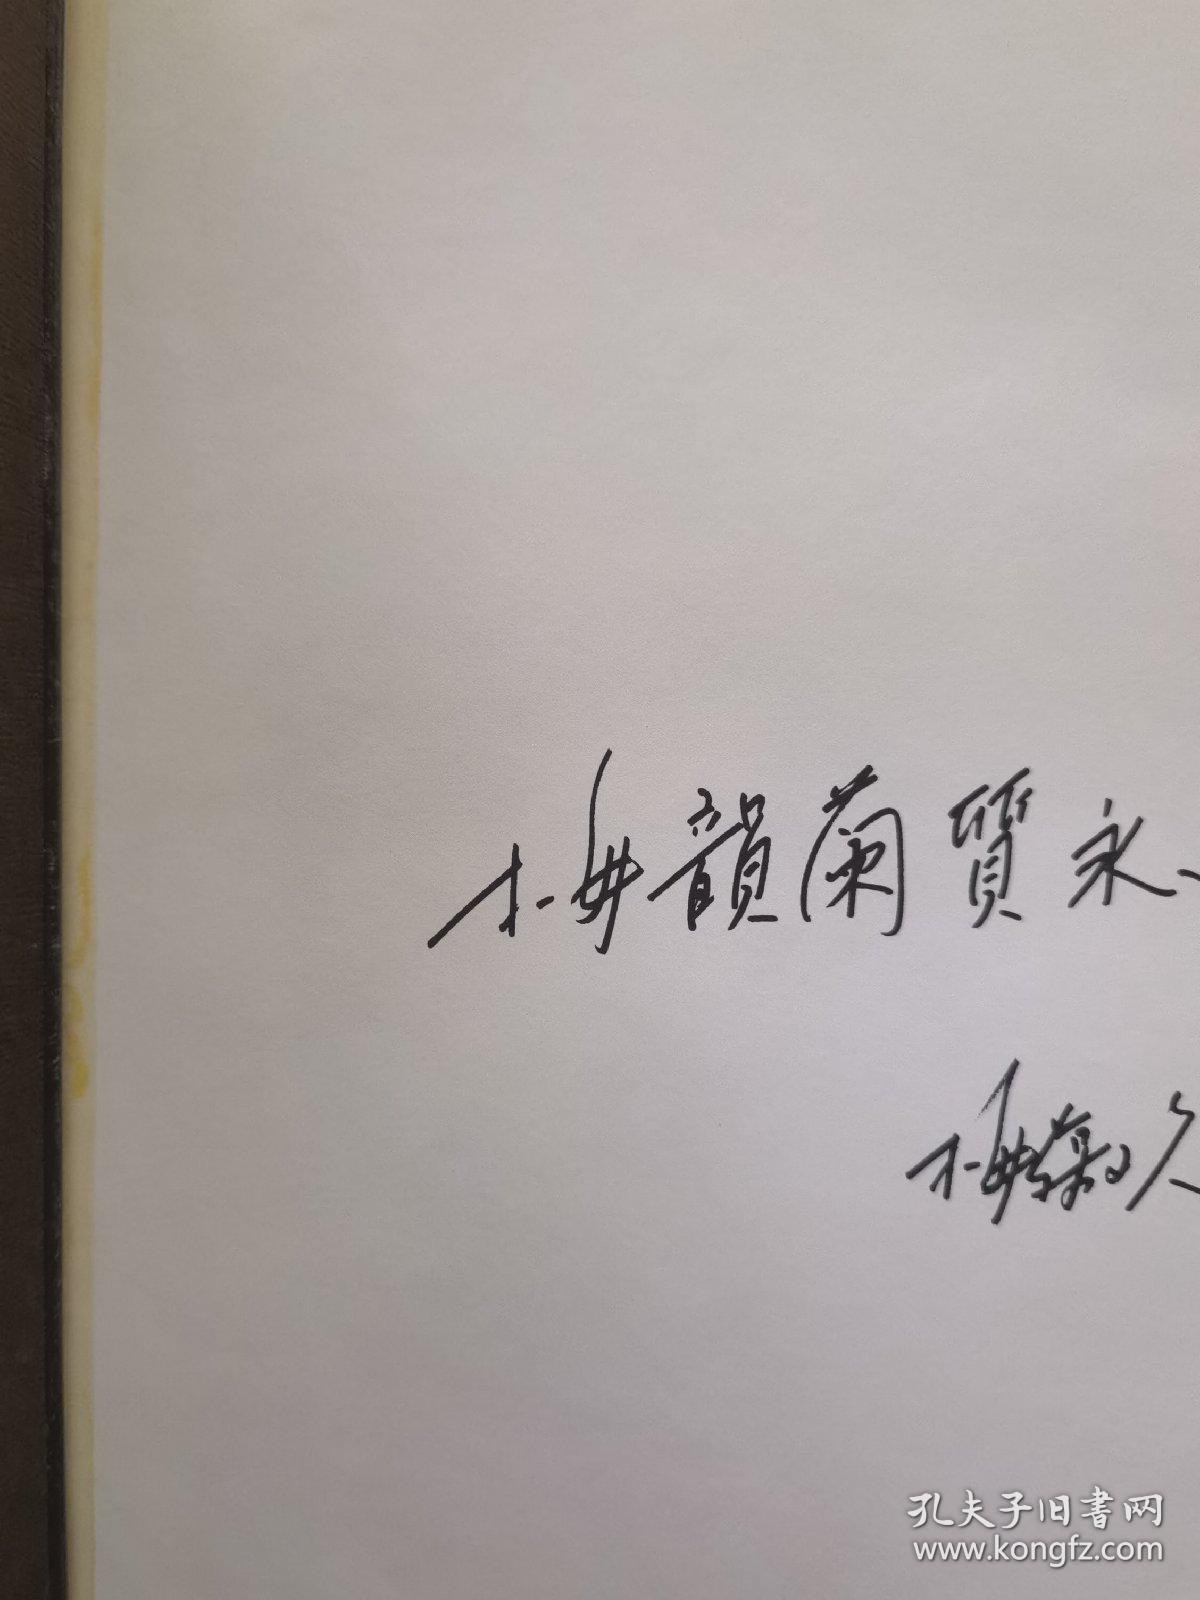 梅韻蘭質永
梅葆玖
孔夫子旧书网
www.kongfz.com